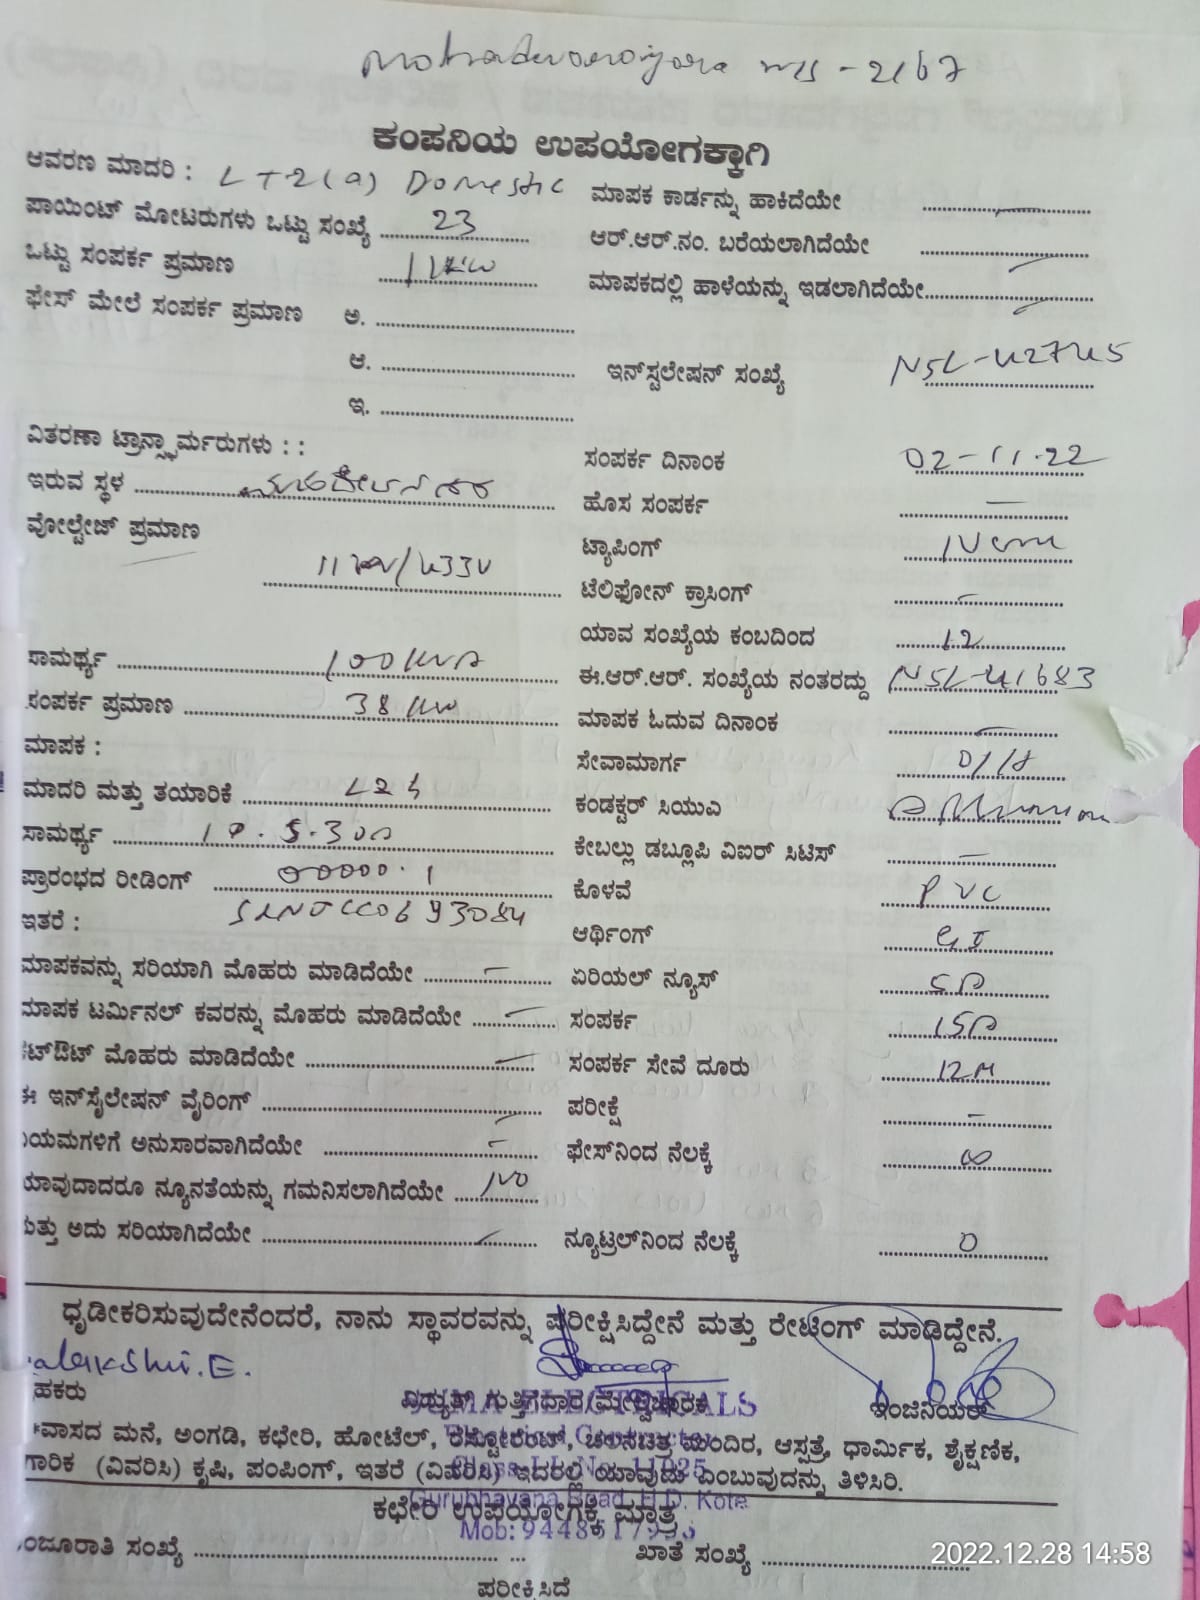 ms - 2167
ಕಂಪನಿಯ ಉಪಯೋಗಕ್ಕಾಗಿ
ಆವರಣ ಮಾದರಿ : LT-2(a) Domestic
ಪಾಯಿಂಟ್ ಮೋಟರುಗಳು ಒಟ್ಟು ಸಂಖ್ಯೆ 23
ಒಟ್ಟು ಸಂಪರ್ಕ ಪ್ರಮಾಣ 1 KW
ಫೇಸ್ ಮೇಲೆ ಸಂಪರ್ಕ ಪ್ರಮಾಣ ಅ.
ಆ.
ಇ.
ಮಾಪಕ ಕಾರ್ಡನ್ನು ಹಾಕಿದೆಯೇ
ಆರ್.ಆರ್.ನಂ. ಬರೆಯಲಾಗಿದೆಯೇ
ಮಾಪಕದಲ್ಲಿ ಹಾಳೆಯನ್ನು ಇಡಲಾಗಿದೆಯೇ
ಇನ್‌ಸ್ಟಲೇಷನ್ ಸಂಖ್ಯೆ NSL-42745
ವಿತರಣಾ ಟ್ರಾನ್ಸ್ಫಾರ್ಮರುಗಳು : :
ಇರುವ ಸ್ಥಳ
ವೋಲ್ಟೇಜ್ ಪ್ರಮಾಣ
11 KV/433V
ಸಾಮರ್ಥ್ಯ 100 KVA
ಸಂಪರ್ಕ ಪ್ರಮಾಣ 38 KW
ಮಾಪಕ :
ಮಾದರಿ ಮತ್ತು ತಯಾರಿಕೆ L24
ಸಾಮರ್ಥ್ಯ 10.5.30A
ಪ್ರಾರಂಭದ ರೀಡಿಂಗ್ 00000.1
ಇತರೆ :
ಮಾಪಕವನ್ನು ಸರಿಯಾಗಿ ಮೊಹರು ಮಾಡಿದೆಯೇ
ಮಾಪಕ ಟರ್ಮಿನಲ್ ಕವರನ್ನು ಮೊಹರು ಮಾಡಿದೆಯೇ
ಕಟ್‌ಔಟ್ ಮೊಹರು ಮಾಡಿದೆಯೇ
ಈ ಇನ್‌ಸೈಲೇಷನ್ ವೈರಿಂಗ್
ಯಮಗಳಿಗೆ ಅನುಸಾರವಾಗಿದೆಯೇ
ಯಾವುದಾದರೂ ನ್ಯೂನತೆಯನ್ನು ಗಮನಿಸಲಾಗಿದೆಯೇ NO
ಮತ್ತು ಅದು ಸರಿಯಾಗಿದೆಯೇ
ಸಂಪರ್ಕ ದಿನಾಂಕ 02-11-22
ಹೊಸ ಸಂಪರ್ಕ —
ಟ್ಯಾಪಿಂಗ್
ಟೆಲಿಫೋನ್ ಕ್ರಾಸಿಂಗ್ —
ಯಾವ ಸಂಖ್ಯೆಯ ಕಂಬದಿಂದ 12
ಈ.ಆರ್.ಆರ್. ಸಂಖ್ಯೆಯ ನಂತರದ್ದು NSL-41683
ಮಾಪಕ ಓದುವ ದಿನಾಂಕ —
ಸೇವಾಮಾರ್ಗ O/H
ಕಂಡಕ್ಟರ್ ಸಿಯುವಿ
ಕೇಬಲ್ಲು ಡಬ್ಲೂಪಿ ವಿಐರ್ ಸಿಟಿಸ್ —
ಕೊಳವೆ PVC
ಆರ್ಥಿಂಗ್ GI
ಏರಿಯಲ್ ನ್ಯೂಸ್ 5A
ಸಂಪರ್ಕ 15A
ಸಂಪರ್ಕ ಸೇವೆ ದೂರು 12M
ಪರೀಕ್ಷೆ —
ಫೇಸ್‌ನಿಂದ ನೆಲಕ್ಕೆ ∞
ನ್ಯೂಟ್ರಲ್‌ನಿಂದ ನೆಲಕ್ಕೆ 0
ಧೃಡೀಕರಿಸುವುದೇನೆಂದರೆ, ನಾನು ಸ್ಥಾವರವನ್ನು ಪರೀಕ್ಷಿಸಿದ್ದೇನೆ ಮತ್ತು ರೇಟಿಂಗ್ ಮಾಡಿದ್ದೇನೆ.
ಹಕರು ವಿದ್ಯುತ್ ಗುತ್ತಿಗೆದಾರ ಮೇಲ್ವಿಚಾರಕ ಇಂಜಿನಿಯರ್
ವಾಸದ ಮನೆ, ಅಂಗಡಿ, ಕಛೇರಿ, ಹೋಟೆಲ್, ರೆಸ್ಟೋರೆಂಟ್, ಚಲನಚಿತ್ರ ಮಂದಿರ, ಆಸ್ಪತ್ರೆ, ಧಾರ್ಮಿಕ, ಶೈಕ್ಷಣಿಕ,
ಗಾರಿಕ (ವಿವರಿಸಿ) ಕೃಷಿ, ಪಂಪಿಂಗ್, ಇತರೆ (ವಿವರಿಸಿ) ಇದರಲ್ಲಿ ಯಾವುದು ಎಂಬುವುದನ್ನು ತಿಳಿಸಿರಿ.
Gurubhavana Road, H.D. Kote
ಕಛೇರಿ ಉಪಯೋಗಕ್ಕೆ ಮಾತ್ರ
ಂಜೂರಾತಿ ಸಂಖ್ಯೆ ಖಾತೆ ಸಂಖ್ಯೆ
ಪರೀಕ್ಷಿಸಿದೆ
2022.12.28 14:58